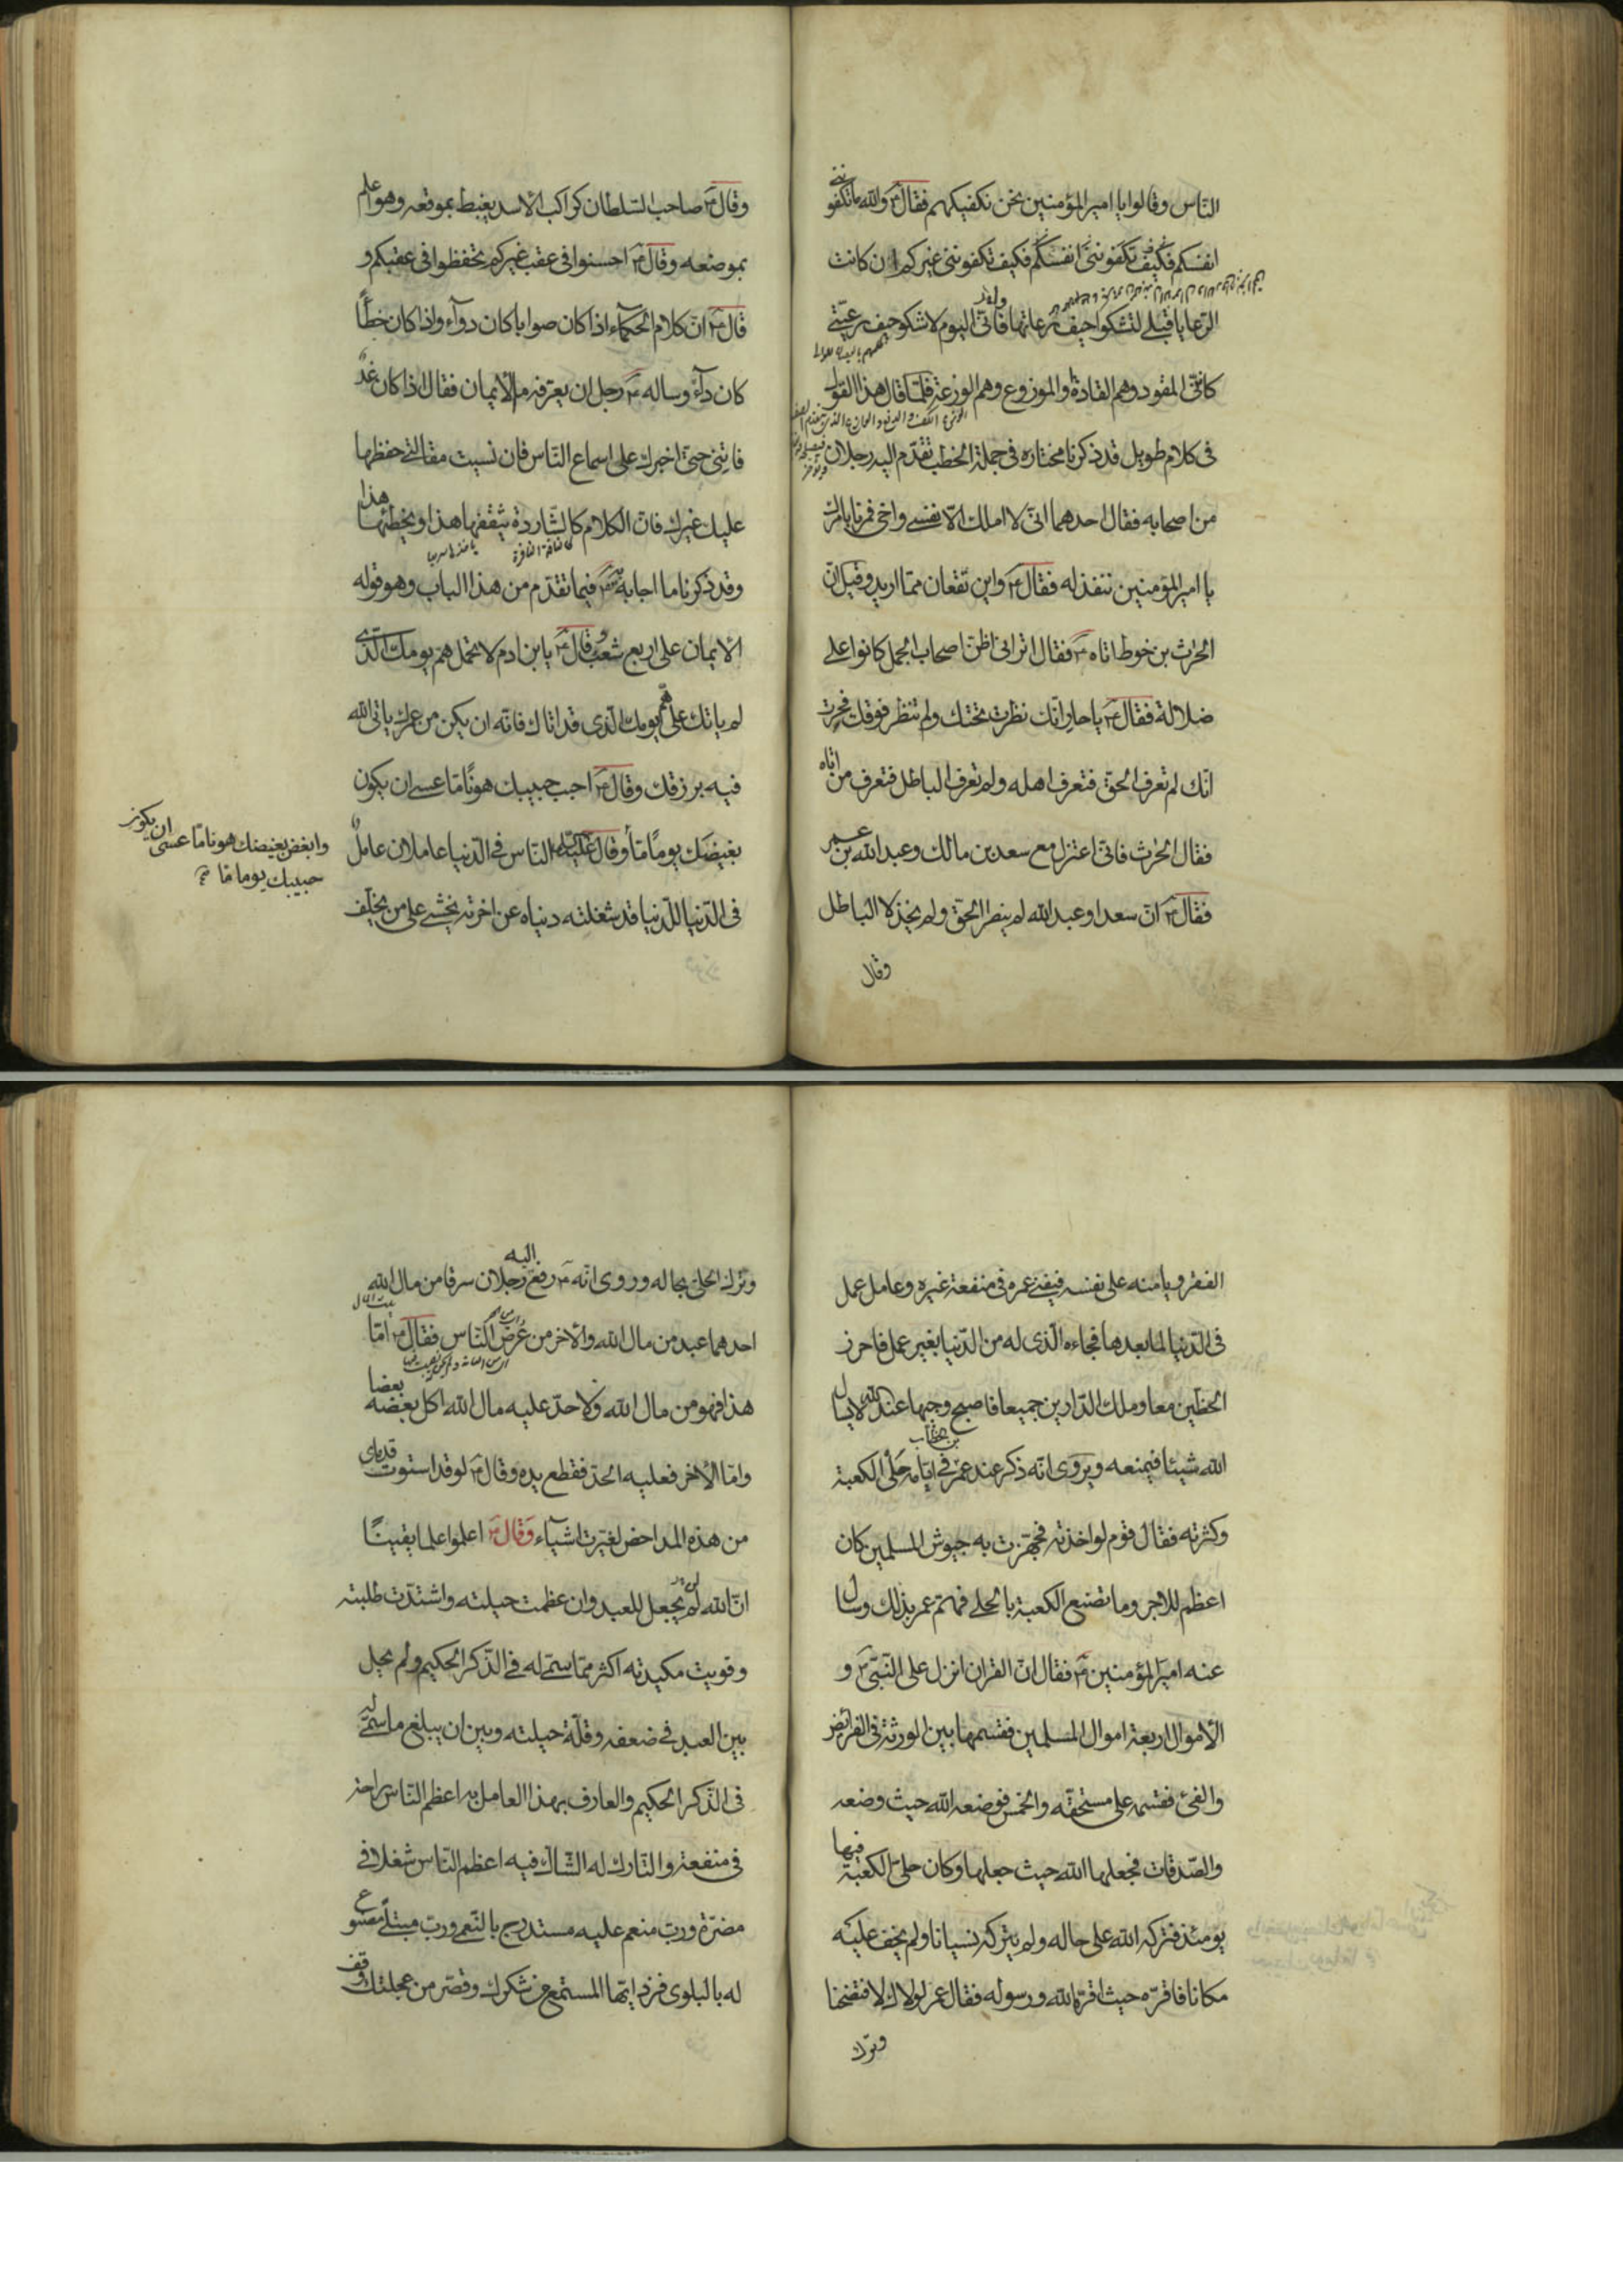 الناس وقالوا يا امير المؤمنين نحن نكفيكهم فقال والله ما تكفونني
انفسكم فكيف تكفونني غيركم ان كانت
الرعايا قبلى لتشكوا حيف رعاتها فانى اليوم لاشكو حيف رعيتى
كاننى المقود وهم القادة والموزوع وهم الوزعة فلما قال هذا القول
فى كلام طويل قد ذكرنا مختاره فى جملة الخطب تقدم اليه رجلان
من اصحابه فقال احدهما انى لا املك الا نفسى واخى فمرنا بامرك
يا امير المؤمنين ننفذ له فقال واين تقعان مما اريد وقيل ان
الحرث بن حوط اتاه فقال اترانى اظن اصحاب الجمل كانوا على
ضلالة فقال يا حار انك نظرت تحتك ولم تنظر فوقك فحرت
انك لم تعرف الحق فتعرف اهله ولم تعرف الباطل فتعرف من اتاه
فقال الحرث فانى اعتزل مع سعد بن مالك وعبد الله بن عمر
فقال ان سعدا وعبد الله لم ينصرا الحق ولم يخذلا الباطل
وقال
وقال صاحب السلطان كراكب الاسد يغبط بموقعه وهو اعلم
بموضعه وقال احسنوا فى عقب غيركم تحفظوا فى عقبكم و
قال ان كلام الحكماء اذا كان صوابا كان دواء واذا كان خطأ
كان داء وساله رجل ان يعرفه ما الايمان فقال اذا كان غد
فاتنى حتى اخبرك على اسماع الناس فان نسيت مقالتى حفظها
عليك غيرك فان الكلام كالشاردة يثقفها هذا ويخطئها هذا
كالناقة النافرة
وقد ذكرنا ما اجابه فيما تقدم من هذا الباب وهو قوله
الايمان على اربع شعب وقال يا بن ادم لا تحمل هم يومك الذى
لم ياتك على هم يومك الذى قد اتاك فانه ان يكن من عمرك ياتى الله
فيه برزقك وقال احبب حبيبك هونا ما عسى ان يكون
بغيضك يوما ما وقال الناس فى الدنيا عاملان عامل
وابغض بغيضك هونا ما عسى ان يكون
حبيبك يوما ما
فى الدنيا للدنيا قد شغلته دنياه عن اخرته يخشى على من يخلف
الفقر ويامنه على نفسه فيفنى عمره فى منفعة غيره وعامل عمل
فى الدنيا لما بعدها فجاءه الذى له من الدنيا بغير عمل فاحرز
الحظين معا وملك الدارين جميعا فاصبح وجيها عند الله لا يسال
الله شيئا فيمنعه ويروى انه ذكر عند عمر بن الخطاب فى ايامه حلى الكعبة
وكثرته فقال قوم لو اخذته فجهزت به جيوش المسلمين كان
اعظم للاجر وما تصنع الكعبة بالحلى فهم عمر بذلك وسال
عنه امير المؤمنين فقال ان القران انزل على النبى و
الاموال اربعة اموال المسلمين فقسمها بين الورثة فى الفرائض
والفئ فقسمه على مستحقه والخمس فوضعه الله حيث وضعه
والصدقات فجعلها الله حيث جعلها وكان حلى الكعبة فيها
يومئذ فتركه الله على حاله ولم يتركه نسيانا ولم يخف عليه
مكانا فاقره حيث اقره الله ورسوله فقال عمر لولاك لافتضحنا
وترك
وترك الحلى بحاله وروى انه رفع اليه رجلان سرقا من مال الله
احدهما عبد من مال الله والاخر من عرض الناس فقال اما
هذا فهو من مال الله ولا حد عليه مال الله اكل بعضه بعضا
واما الاخر فعليه الحد فقطع يده وقال لو قد استوت قدماى
من هذه المداحض لغيرت اشياء وقال اعلموا علما يقينا
ان الله لم يجعل للعبد وان عظمت حيلته واشتدت طلبته
وقويت مكيدته اكثر مما سمى له فى الذكر الحكيم ولم يحل
بين العبد فى ضعفه وقلة حيلته وبين ان يبلغ ما سمى له
فى الذكر الحكيم والعارف بهذا العامل به اعظم الناس راحة
فى منفعة والتارك له الشاك فيه اعظم الناس شغلا فى
مضرة ورب منعم عليه مستدرج بالنعمى ورب مبتلى مصنوع
له بالبلوى فزد ايها المستمع فى شكرك وقصر من عجلتك وقف